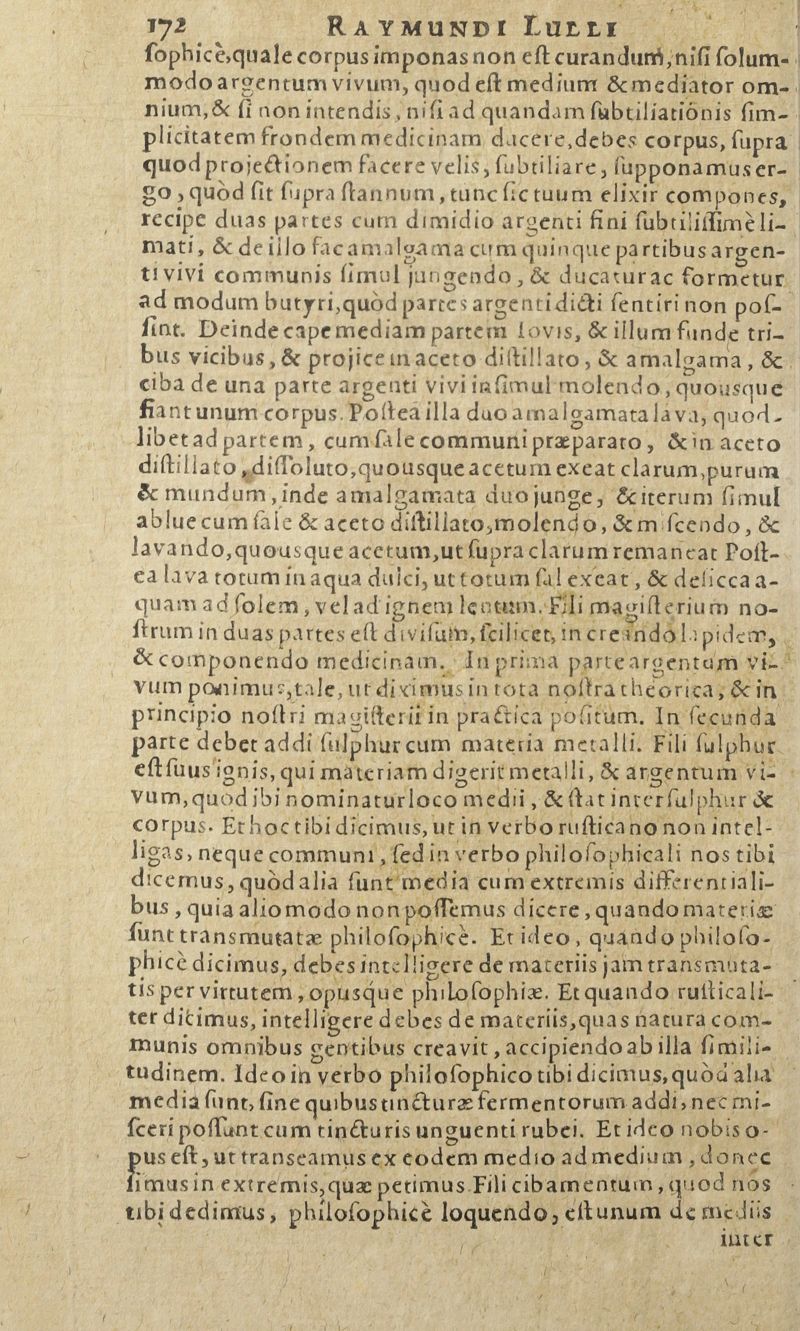 172 RAYMUNDI LULLI
ſophicè,quale corpus imponas non eſt curandum,niſi ſolum-
modo argentum vivum, quod eſt medium & mediator om-
nium,& ſi non intendis, niſi ad quandam ſubtiliatiònis ſim-
plicitatem frondem medicinam ducere,debes corpus, ſupra
quod projectionem facere velis, ſubtiliare, ſupponamus er-
go, quòd ſit ſupra ſtannum, tunc ſic tuum elixir compones,
recipe duas partes cum dimidio argenti fini ſubtiliſſimè li-
mati, & de illo fac amalgama cum quinque partibus argen-
ti vivi communis ſimul jungendo, & ducatur ac formetur
ad modum butyri,quòd partes argenti dicti ſentiri non poſ-
ſint. Deinde cape mediam partem Iovis, & illum funde tri-
bus vicibus, & projice in aceto diſtillato, & amalgama, &
ciba de una parte argenti vivi inſimul molendo, quousque
fiant unum corpus. Poſtea illa duo amalgamata lava, quod-
libet ad partem, cum ſale communi præparato, & in aceto
diſtillato, diſſoluto,quousque acetum exeat clarum,purum
& mundum, inde amalgamata duo junge, & iterum ſimul
ablue cum ſale & aceto diſtillato,molendo, & miſcendo, &
lavando,quousque acetum,ut ſupra clarum remaneat Poſt-
ea lava totum in aqua dulci, ut totum ſal exeat, & deſicca a-
quam ad ſolem, vel ad ignem lentum. Fili magiſterium no-
ſtrum in duas partes eſt diviſum,ſcilicet, in creando lapidem,
& componendo medicinam. In prima parte argentum vi-
vum ponimus,tale, ut diximus in tota noſtra theorica, & in
principio noſtri magiſterii in practica poſitum. In ſecunda
parte debet addi ſulphur cum materia metalli. Fili ſulphur
eſt ſuus ignis, qui materiam digerit metalli, & argentum vi-
vum,quod ibi nominatur loco medii, & ſtat inter ſulphur &
corpus. Et hoc tibi dicimus, ut in verbo ruſticano non intel-
ligas, neque communi, ſed in verbo philoſophicali nos tibi
dicemus, quòd alia ſunt media cum extremis differentiali-
bus, quia alio modo non poſſemus dicere, quando materiæ
ſunt transmutatæ philoſophicè. Et ideo, quando philoſo-
phicè dicimus, debes intelligere de materiis jam transmuta-
tis per virtutem, opusque philoſophiæ. Et quando ruſticali-
ter dicimus, intelligere debes de materiis,quas natura com-
munis omnibus gentibus creavit, accipiendo ab illa ſimili-
tudinem. Ideo in verbo philoſophico tibi dicimus,quòd alia
media ſunt, ſine quibus tincturæ fermentorum addi, nec mi-
ſceri poſſunt cum tincturis unguenti rubei. Et ideo nobis o-
pus eſt, ut transeamus ex eodem medio ad medium, donec
ſimus in extremis,quæ petimus. Fili cibamentum, quod nos
tibi dedimus, philoſophicè loquendo, eſt unum de mediis
inter